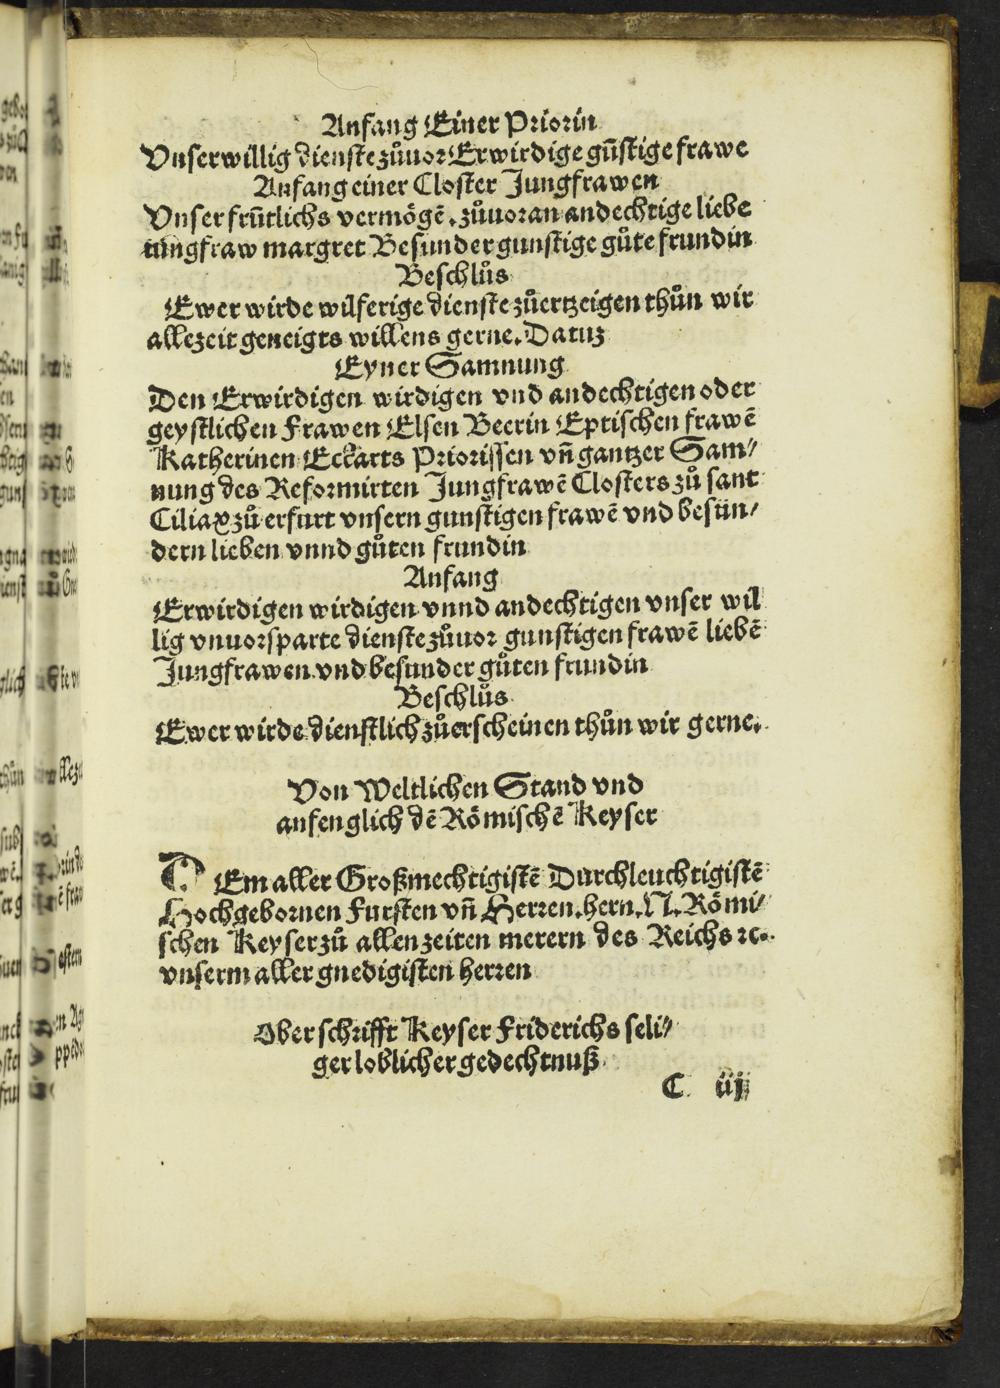 Anfang Einer Priorin
Vnser willig dienste zůuor Erwirdige gūstige frawe
Anfang einer Closter Jungfrawen
Vnser frūtlichs vermögē. zůuoran andechtige liebe
iungfraw margret Besunder gunstige gůte frundin
Beschlůs
Ewer wirde wilferige dienste zůertzeigen thůn wir
allezeit geneigts willens gerne. Datuz
Eyner Samnung
Den Erwirdigen wirdigen vnd andechtigen oder
geystlichen Frawen Elsen Beerin Eptischen frawē
Katherinen Eckarts Priorissen vñ gantzer Sam/
nung des Reformirten Jungfrawē Closters zů sant
Ciliax zů erfurt vnsern gunstigen frawē vnd besün/
dern lieben vnnd gůten frundin
Anfang
Erwirdigen wirdigen vnnd andechtigen vnser wil
lig vnuorsparte dienste zůuor gunstigen frawē liebē
Jungfrawen vnd besunder gůten frundin
Beschlůs
Ewer wirde dienstlich zůerscheinen thůn wir gerne.
Von Weltlichen Stand vnd
anfenglich dē Römischē Keyser
DEm aller Großmechtigistē Durchleuchtigistē
Hochgebornen Fursten vñ Herren. hern. N. Römi/
schen Keyser zů allen zeiten merern des Reichs ꝛc.
vnserm aller gnedigisten herren
Oberschrifft Keyser Friderichs seli/
ger loblicher gedechtnuß
C iij